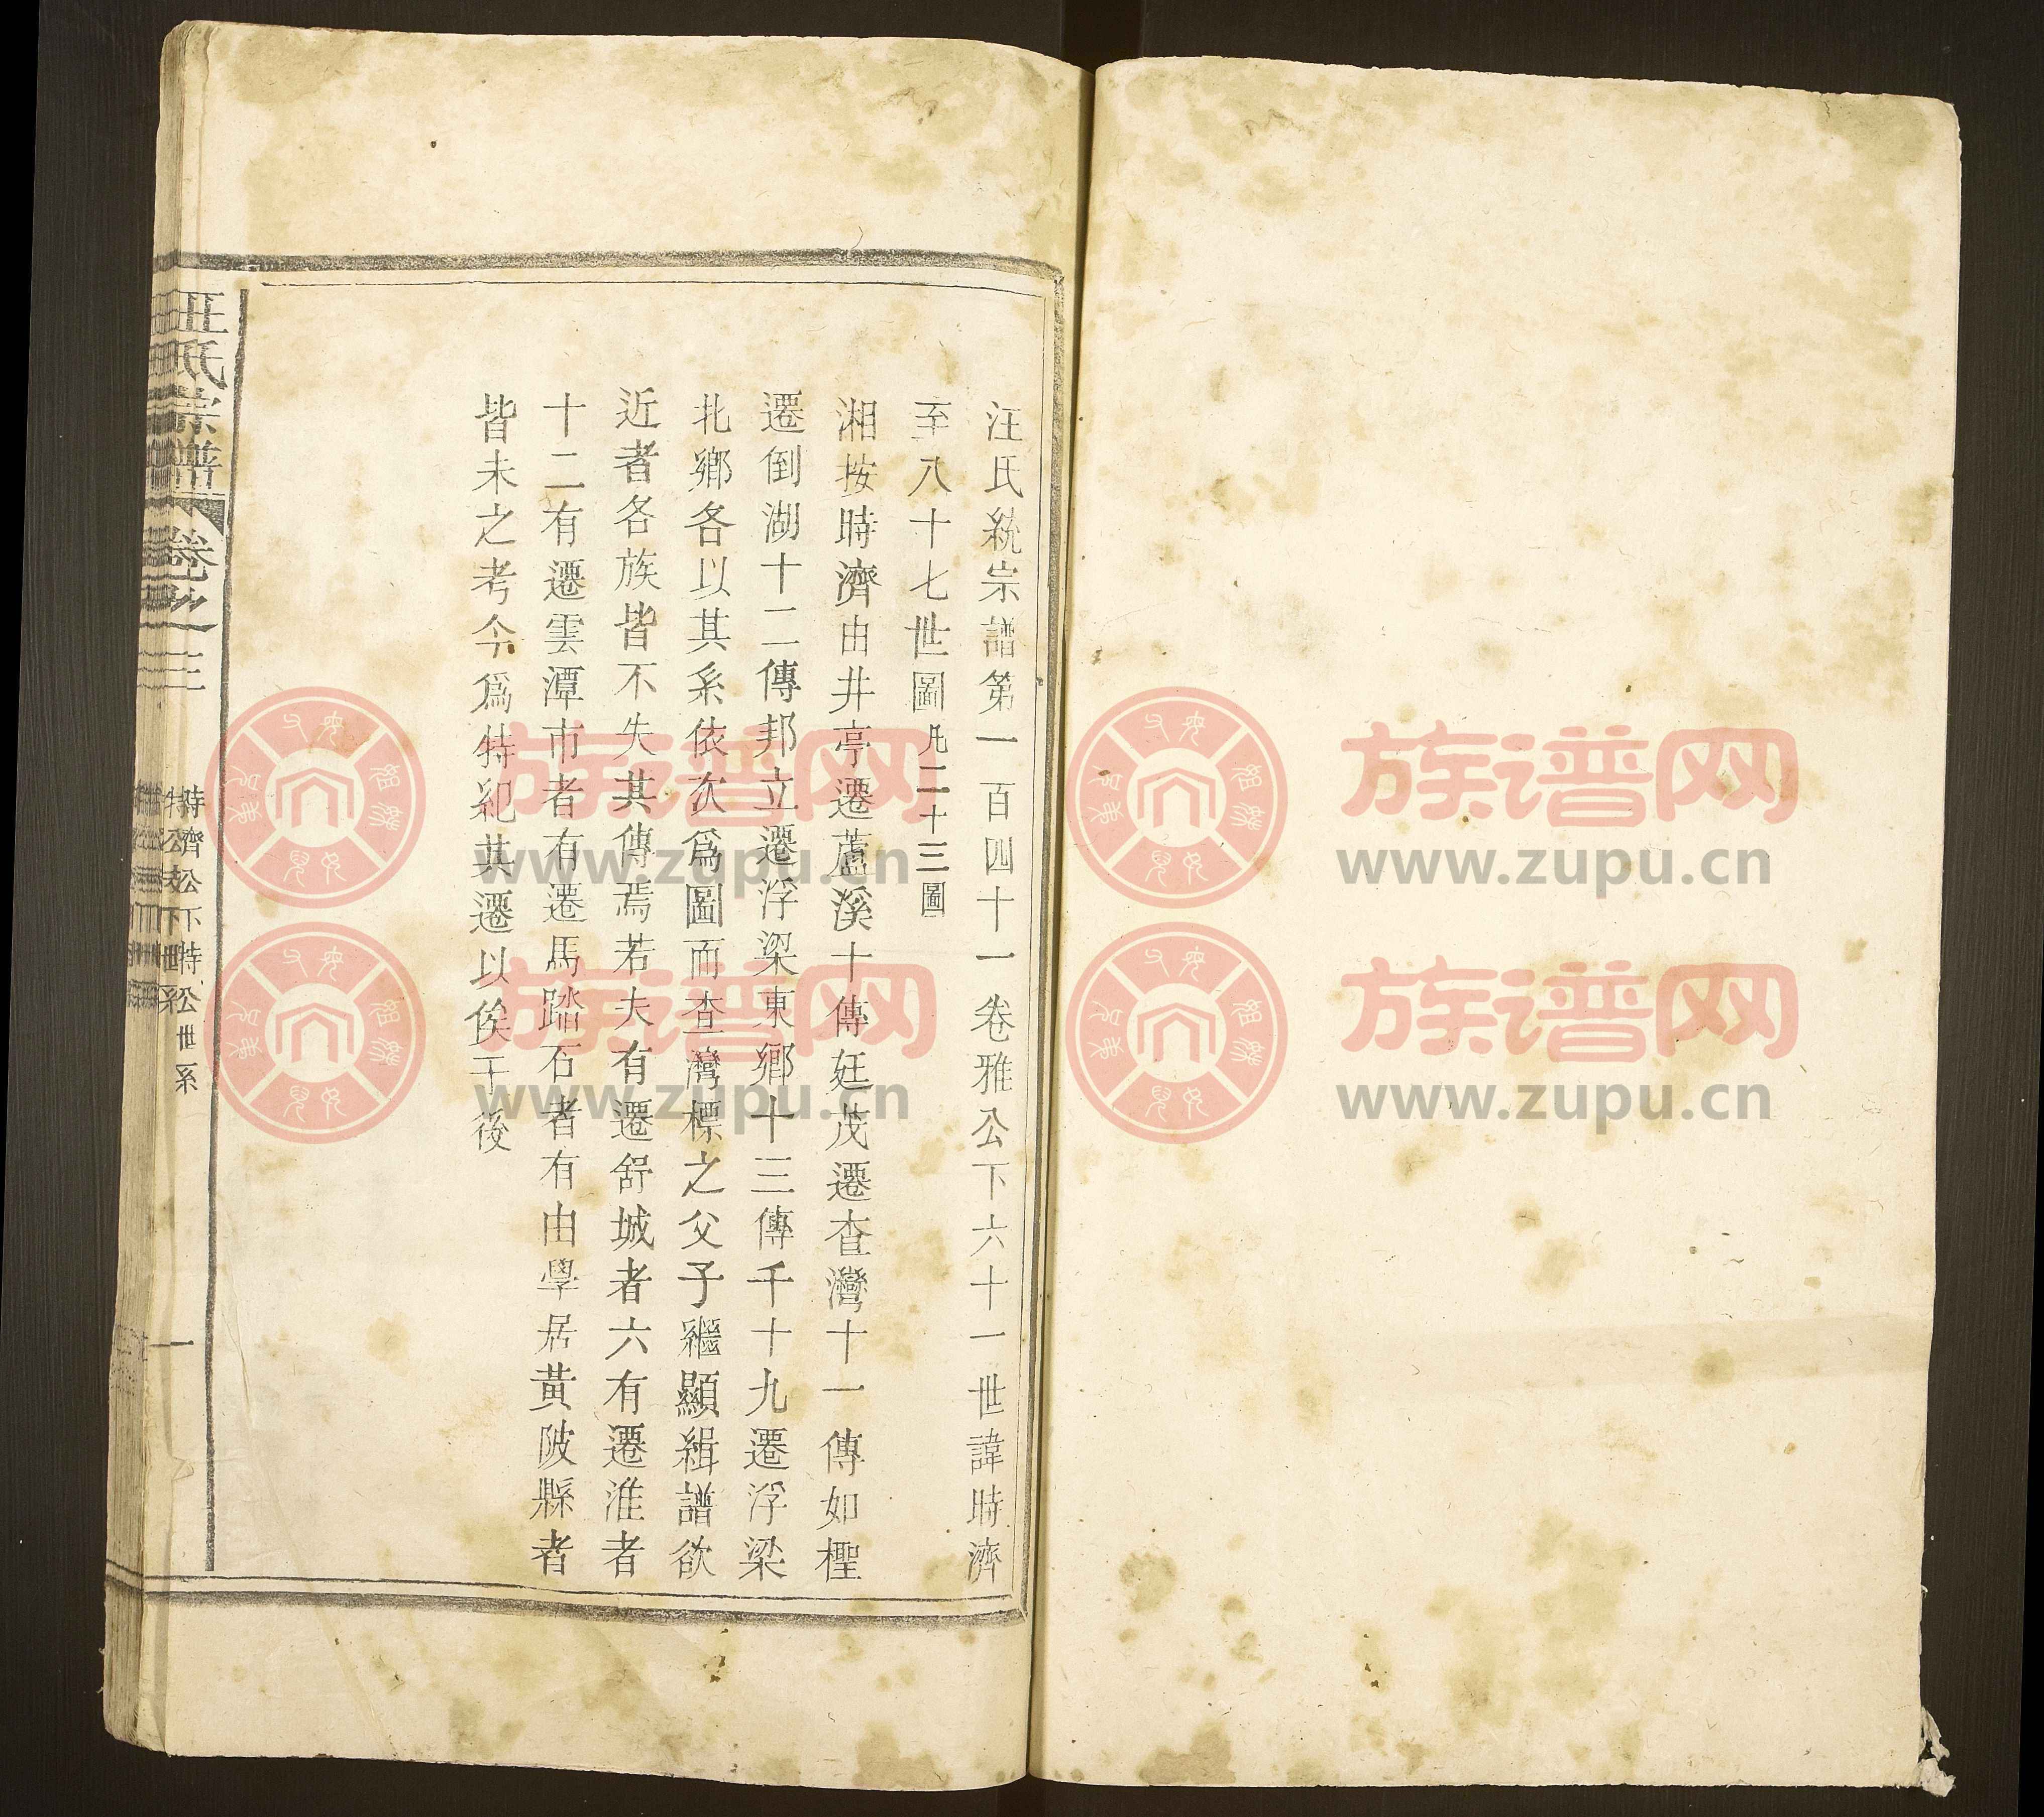 汪氏統宗譜第一百四十一卷雅公下六十一世諱時濟
至八十七世圖凡二十三圖
湘按時濟由井亭遷蘆溪十傳廷茂遷查灣十一傳如檉
遷倒湖十二傳邦立遷浮梁東鄉十三傳千十九遷浮梁
北鄉各以其系依次爲圖而查灣標之父子繼顯緝譜欲
近者各族皆不失其傳焉若夫有遷舒城者六有遷淮者
十二有遷雲潭市者有遷馬踏石者有由學居黃陂縣者
皆未之考今爲特紀其遷以俟于後
宗譜
卷之
三
時濟公下特公世系
一
族谱网
www.zupu.cn
族谱网
www.zupu.cn
族谱网
www.zupu.cn
族谱网
www.zupu.cn